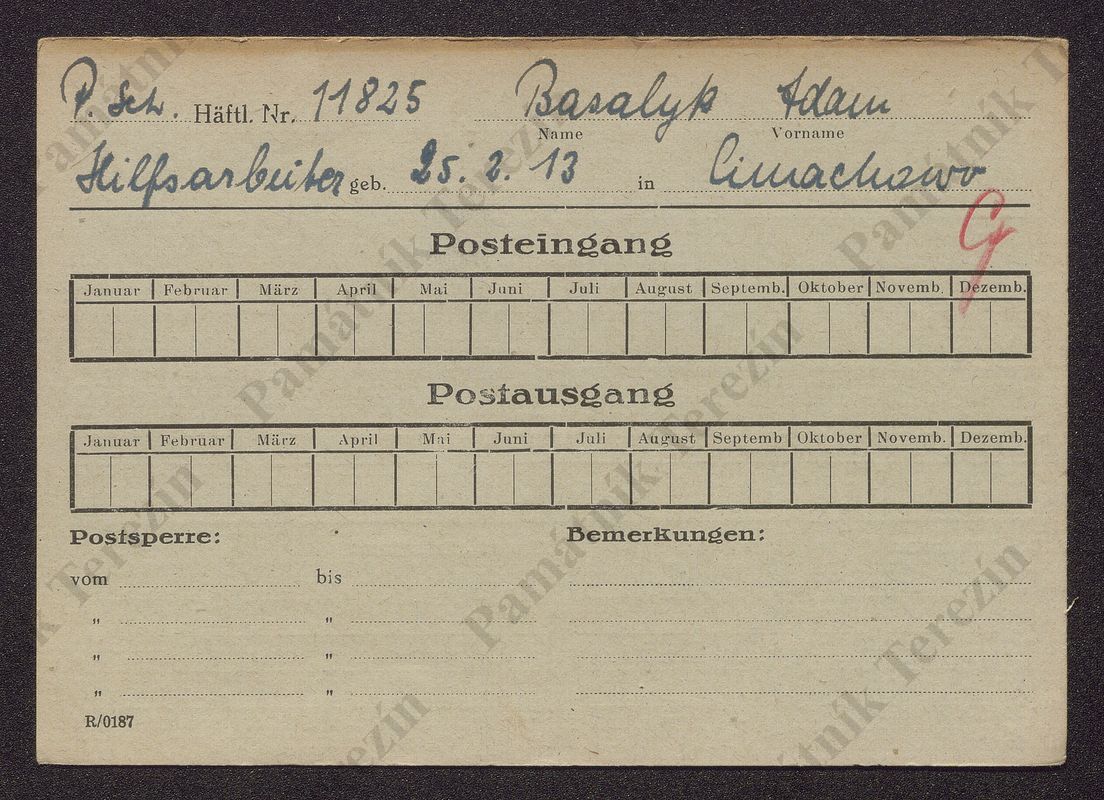 P. Sch. Häftl. Nr. 11825 Basalyk Adam
Name Vorname
Hilfsarbeiter geb. 25. 2. 13 in Cimachowo
G
Posteingang
Januar Februar März April Mai Juni Juli August Septemb. Oktober Novemb. Dezemb.
Postausgang
Januar Februar März April Mai Juni Juli August Septemb Oktober Novemb. Dezemb.
Postsperre: Bemerkungen:
vom bis
" "
" "
" "
R/0187
Památník Terezín